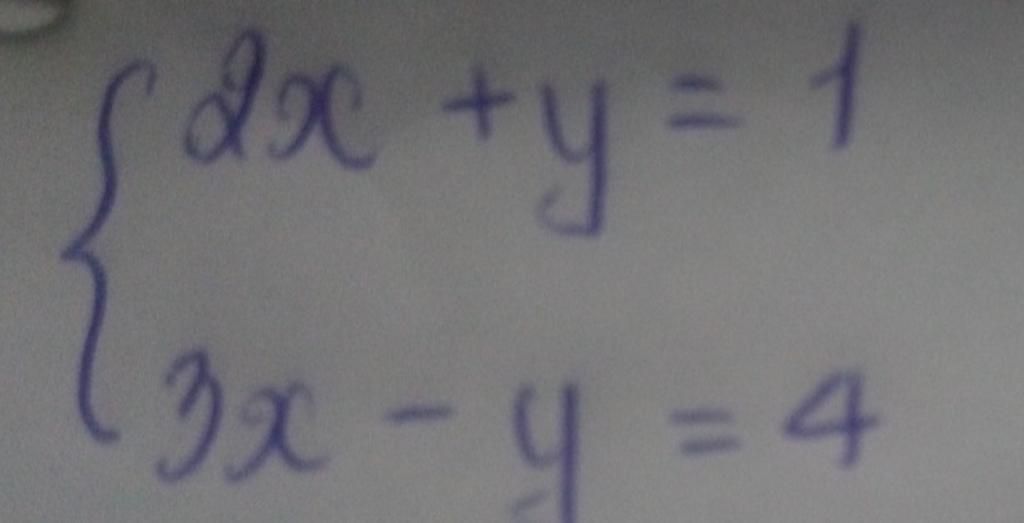 2x + y = 1
3x - y = 4